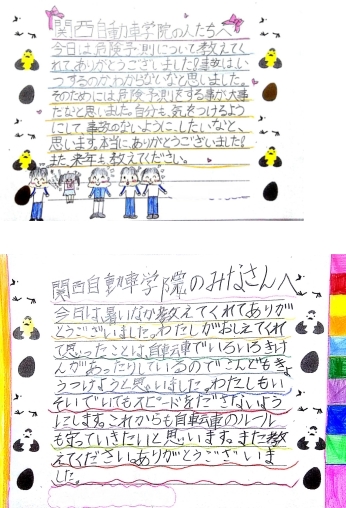 関西自動車学院の人たちへ
今日は危険予測について教えてく
れてありがとうございました!事故は、い
つするのかわからないなと思いました。
そのためには危険予測をする事が大事
だなと思いました。自分も、気をつけるよう
にして、事故のないように、したいなと、
思います。本当に、ありがとうございました!
また、来年も教えてください。
関西自動車学院のみなさんへ
今日は、暑いなか教えてくれてありが
とうございました。わたしがおしえてくれ
て思ったことは、自転車でいろいろきけ
んがあったりしているのでこんどもきょ
うつけようと思いました。わたしもい
そいでいてもスピードをださないよう
にします。これからも自転車のルール
もまもっていきたいと思います。また教
えてください。ありがとうございま
した。